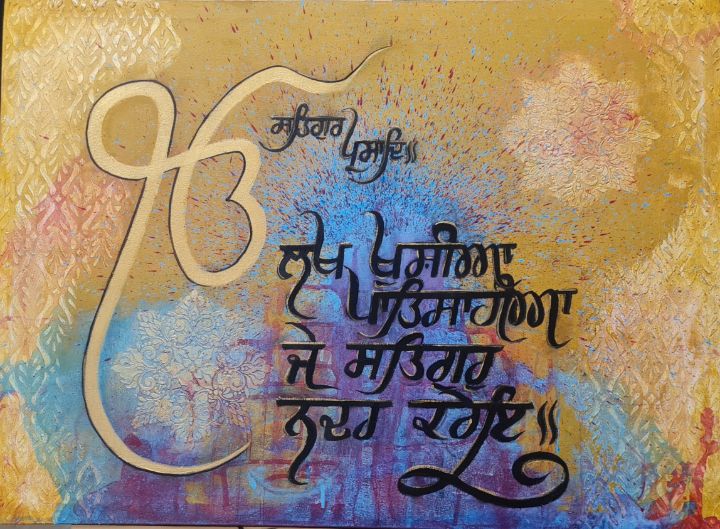 ੴ ਸਤਿਗੁਰ
ਪ੍ਰਸਾਦਿ॥
ਲਖ ਖੁਸੀਆ
ਪਾਤਿਸਾਹੀਆ
ਜੇ ਸਤਿਗੁਰ
ਨਦਰ ਕਰੇਇ॥